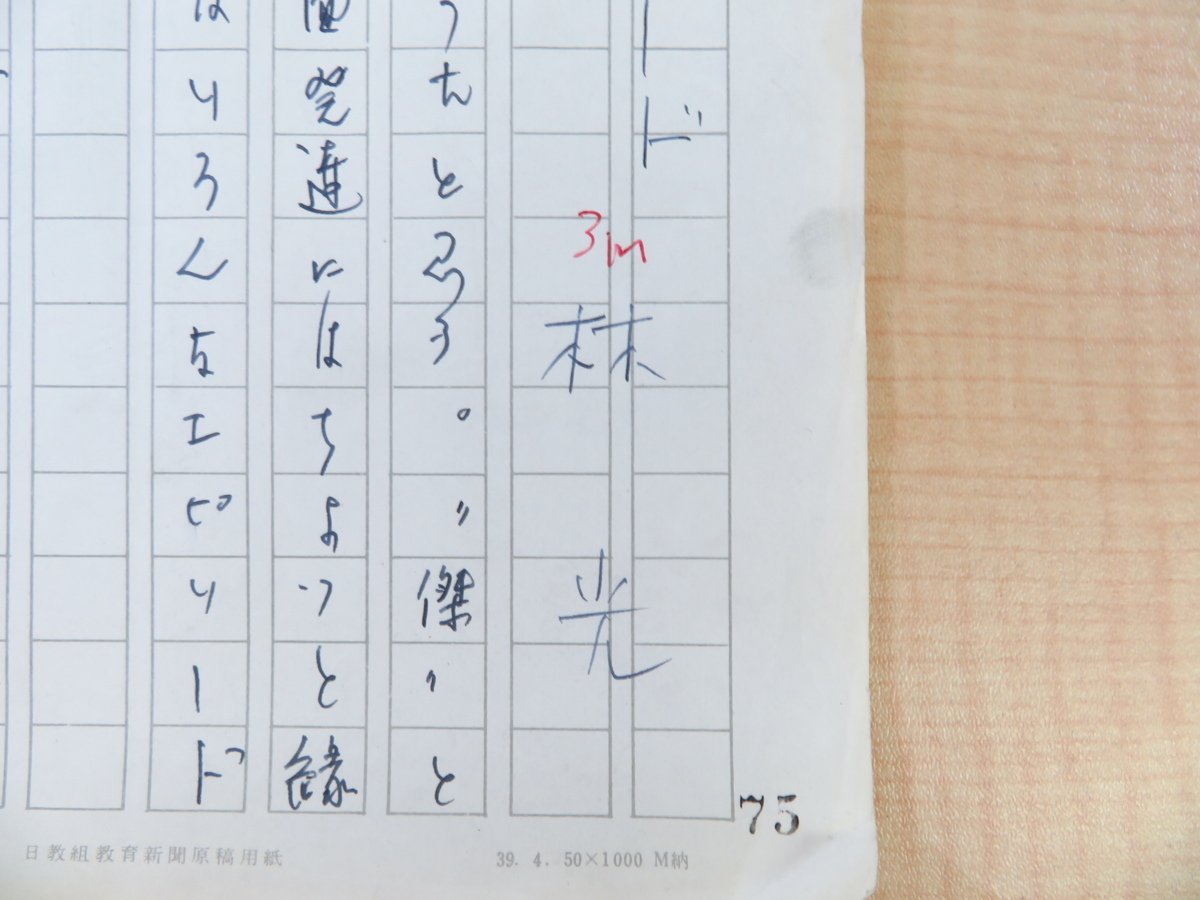 ード
3m
林 光
うたと思う。〃傑〃と
発達にはちょっと縁
はいろんなエピソード
75
日教組教育新聞原稿用紙
39. 4. 50×1000 M納